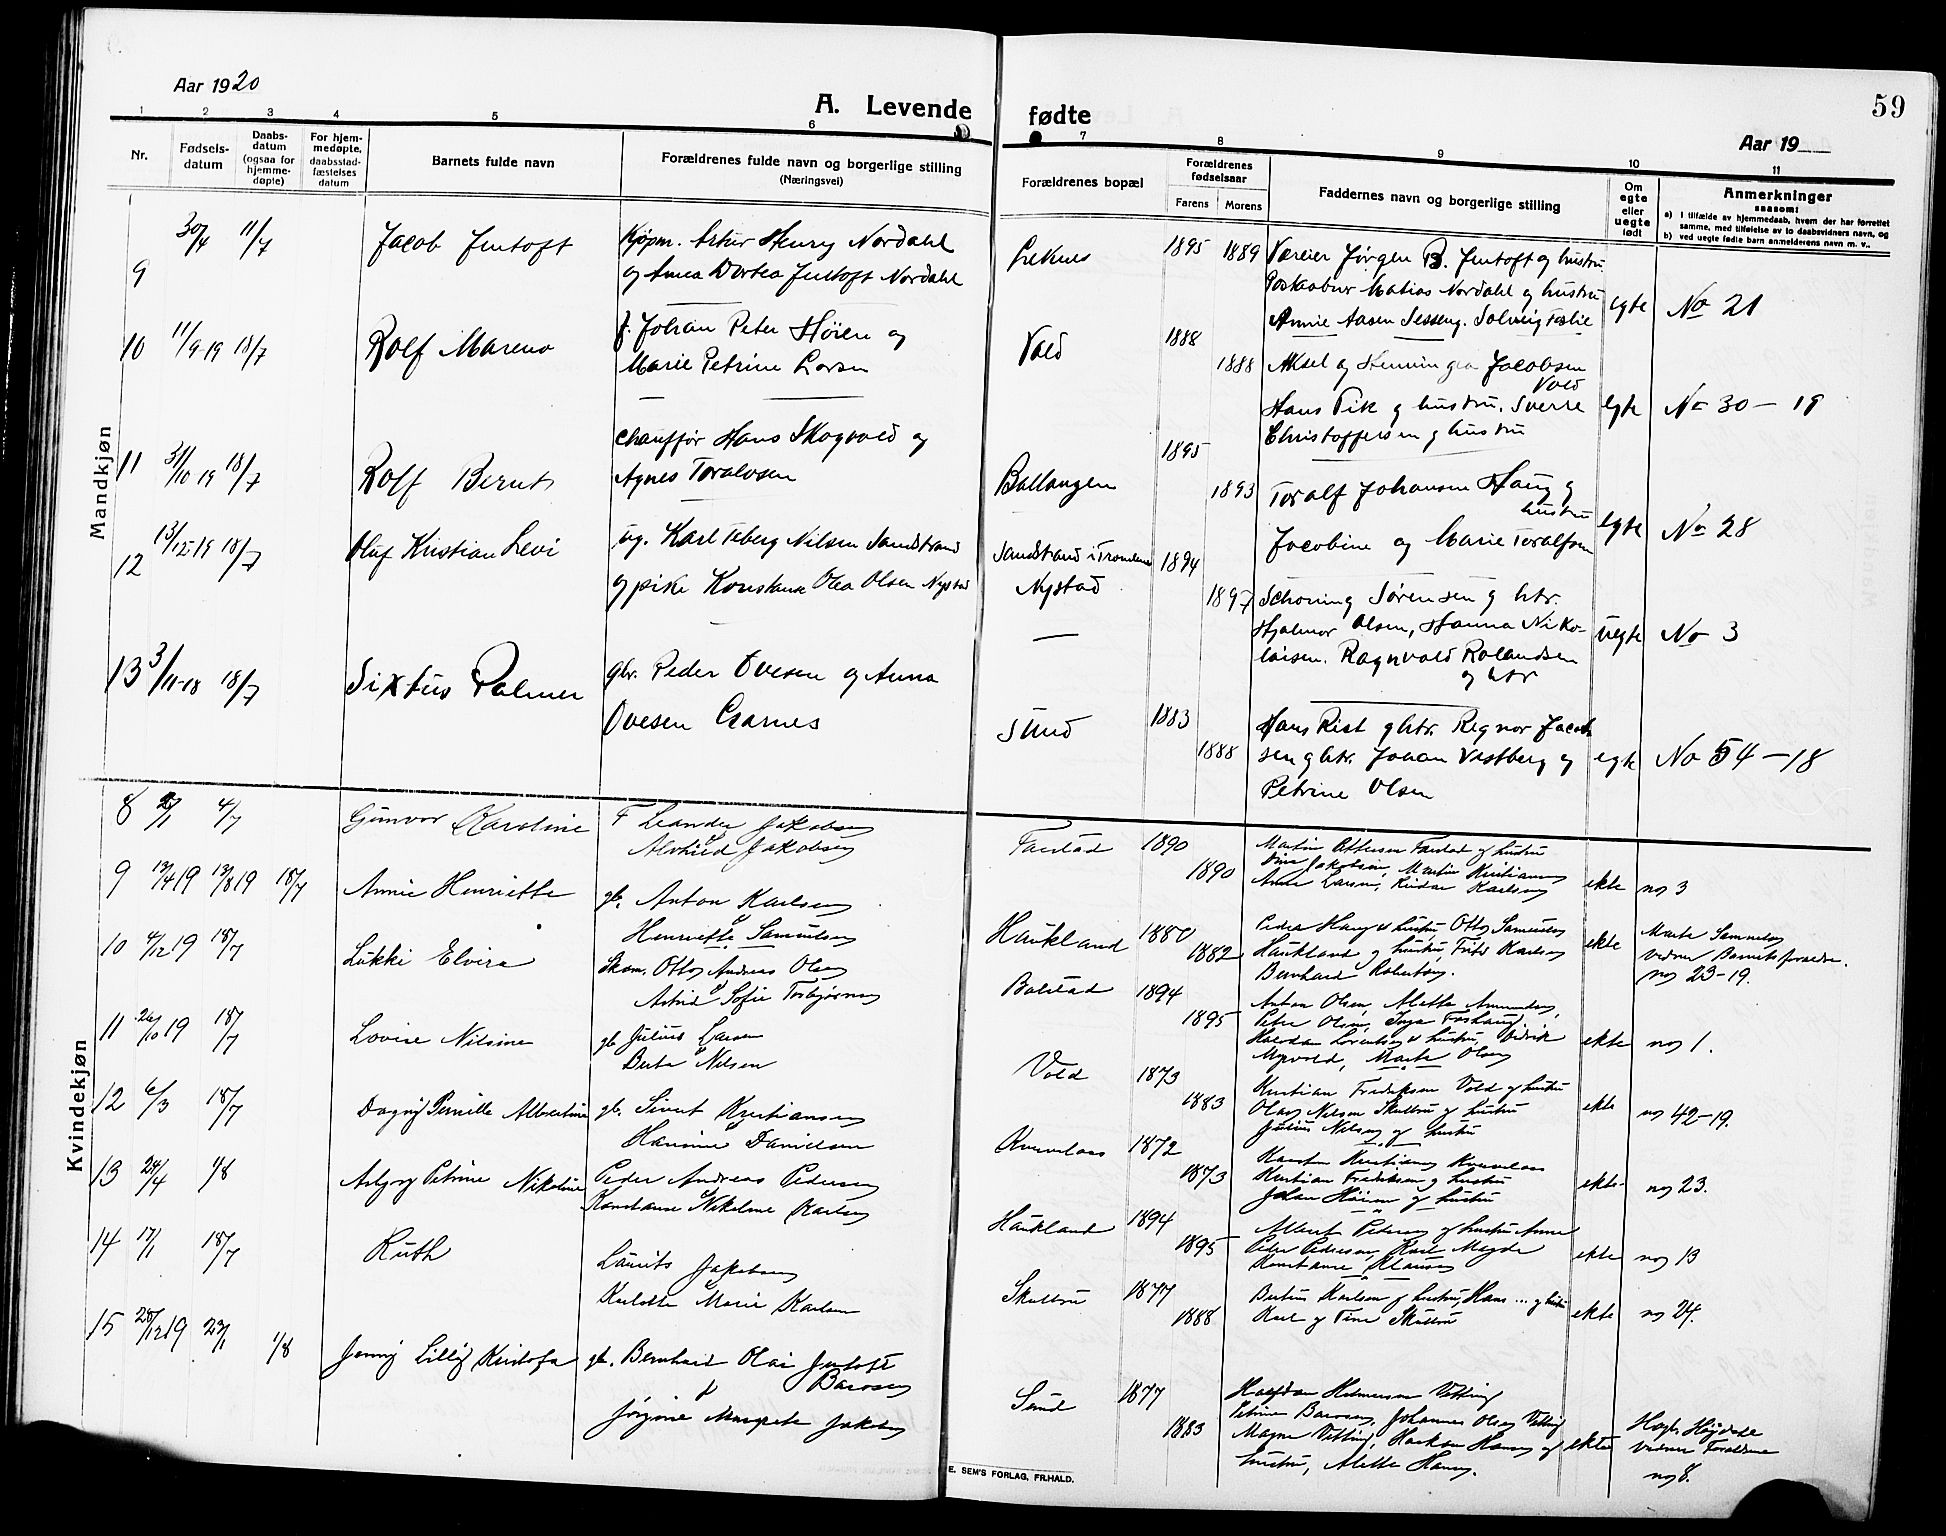 59
Aar 1920
A. Levende fødte
Aar 19
1 2 3 4 5 6 7 8 9 10 11
Nr.
Fødsels-
datum
Daabs-
datum
(ogsaa for
hjemme-
døpte)
For hjem-
medøpte,
daabsstad-
fæstelses
datum
Barnets fulde navn
Forældrenes fulde navn og borgerlige stilling
(Næringsvei)
Forældrenes bopæl
Forældrenes
fødselsaar
Farens Morens
Faddernes navn og borgerlige stilling
Om
egte
eller
uegte
født
Anmerkninger
saasom:
a) I tilfælde av hjemmedaab, hvem der har forrettet
samme, med tilføielse av to daabsvidners navn, og
b) ved uegte fødte barn anmelderens navn m. v..
Mandkjøn
9 30/4 11/7 Jacob Jentoft
Kjøpm. Artur Henry Nordahl
og Anna Dortea Jentoft Nordahl
Leknes 1895 1889
Væreier Jørgen B. Jentoft og hustru
Matias Nordahl og hustru
Annie Aasen Solveig
egte No 21
10 11/9 19 18/7 Rolf Mareno
f. Johan Peter Høien og
Marie Petrine Larsen
Vold 1888 1888
Aksel og Jacobsen
Vold
Hans og hustru, Sverre
Christoffersen g hustru
egte No 30 – 19
11 31/10 19 18/7 Rolf Bernt
Chauffør Hans Skogvold og
Agnes Toralvsen
Ballangen 1895 1893
Toralf Johansen Haug g
hustru
Jacobine og Marie Toralfsen
egte No 28
12 13/12 19 18/7 Oluf Kristian Levi
ug. Karl Nilsen Sandstrand
og pike Konstanse Olea Olsen Nystad
Sandstrand i Trondenes
Nystad 1894 1897
Schøning Sørensen g htr.
Hjalmar Olsen, Hanna Niko-
laisen. Ragnvald Rolandsen
og htr
uegte No 3
13 3/11-18 18/7 Sixtus Palmer
gbr. Peder Ovesen og Anna
Ovesen
Sund 1883 1888
Hans Rist g htr. Regnor Jacob-
sen g htr. Johan Vestberg og
Petrine Olsen
egte No 54 – 18
Kvindekjøn
8 4/7 Gunvor Karoline
F Leander Jakobsen
Alvhild Jakobsen
Farstad 1890 1890
Martin Farstad og hustru
Jakobsen, Martin Kristiansen
Anna Larsen, Karlsen
ekte no 3
9 13/4 19 13/8 19 18/7 Annie Henriette
gb. Anton Karlsen
Henriette Samuelsen
Haukland 1880 1882
Peder Haug og hustru, Otto Samuelsen
Haukland og hustru, Frits Karlsen
Bernhard Robertsen.
ekte
vidner Barnets forældre.
no 23-19.
10 4/12 19 18/7 Lukki Elvira
Skom. Otto Andreas Olsen
Astrid Sofie Torbjørnsen
Bolstad 1894 1895
Anton Olsen, Aletta Amundsen,
Peter Olsen, Inga
Lorentsen og hustru, Didrik
Myrvold, Marta Olsen
ekte no 1.
11 26/10 19 18/7 Lovise Nilsine
gb Julius Larsen
Berta Nilsen
Vold 1873 1883
Kristian Fredriksen Vold og hustru
Olav Nilsen Skultbru og hustru
Julius Nilsen og hustru
ekte no 42-19.
12 6/3 18/7 Dagny Pernille Albertine
gb. Sivert Kristiansen
Hansine Danielsen
1872 1873
Karsten Kristiansen
Kristian Fredriksen og hustru
Johan Høien og hustru
ekte no 23.
13 24/4 1/8 Asbjørg Petrine Nikoline
Peder Andreas Pedersen
Konstanse Nikoline Karlsen
Haukland 1894 1895
Albert Pedersen og hustru Anna
Peter Pedersen, Karl Magda
Konstanse Klausen
ekte no 13
14 17/1 18/7 Ruth
Laurits Jakobsen
Marie Karlsen
Skultbru 1877 1888
Bertius Karlsen og hustru, Hans ... og hustru
Karl og Tine Skultbru
ekte no 24.
15 28/12 19 23/1 1/8 Jenny Lilly Kristofa
gb. Bernhard Olai Jentoft
Barosen
Jørgine Margrete Jakobsen
Sund 1877 1883
Halfdan Hilmersen Vetting
Petrine Barosen, Johannes Olsen Vetting
Magne Vetting, Haakon Hansen og
hustru, Alette Hansen.
ekte
vidner Forældrene
no 8.
E. SEM'S FORLAG, FR.HALD.